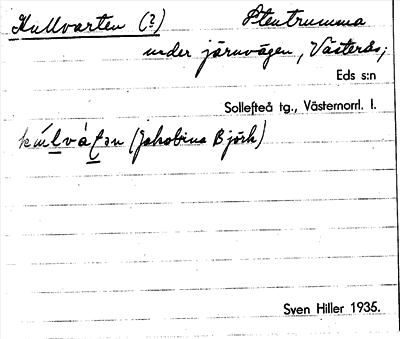 Kullvarten (?) Stentrumma
under järnvägen, Västerås,
Eds s:n
Sollefteå tg., Västernorrl. l.
(Jakobina Björk)
Sven Hiller 1935.